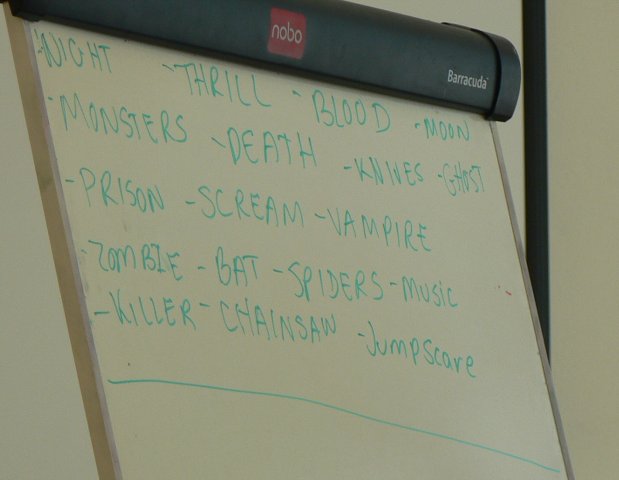 nobo
Barracuda
-NIGHT -THRILL -BLOOD -MOON
-MONSTERS -DEATH -KNIVES -GHOST
-PRISON -SCREAM -VAMPIRE
-ZOMBIE -BAT -SPIDERS -MUSIC
-KILLER -CHAINSAW -Jumpscare